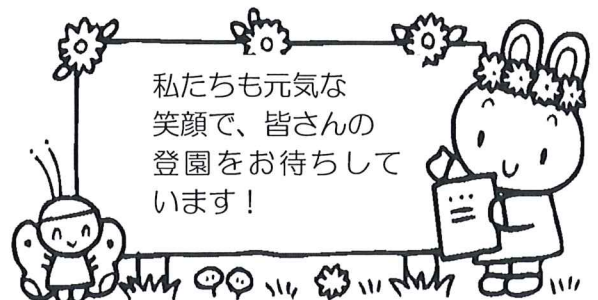 私たちも元気な
笑顔で、皆さんの
登園をお待ちして
います！